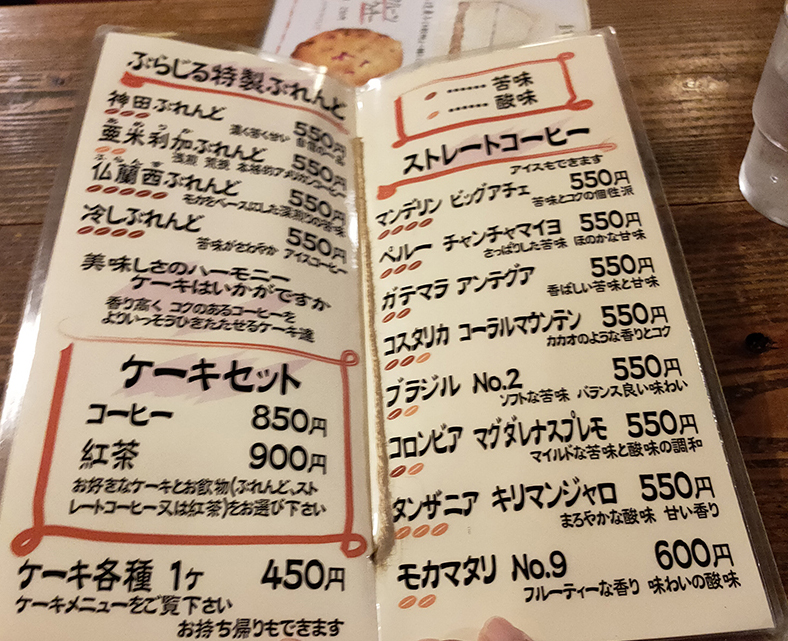 ぶらじる特製ぶれんど
神田ぶれんど 550円
濃く苦く甘い 自慢の一品
あめりか
亜米利加ぶれんど 550円
浅煎 荒挽 本格的アメリカンコーヒー
ふらんす
仏蘭西ぶれんど 550円
モカをベースにした深煎りの苦味
冷しぶれんど 550円
苦味がさわやか アイスコーヒー
美味しさのハーモニー
ケーキはいかがですか
香り高く コクのあるコーヒーを
よりいっそうひきたたせるケーキ達
ケーキセット
コーヒー 850円
紅茶 900円
お好きなケーキとお飲物(ぶれんど、スト
レートコーヒー又は紅茶)をお選び下さい
ケーキ各種 1ケ 450円
ケーキメニューをご覧下さい
お持ち帰りもできます
……苦味
……酸味
ストレートコーヒー
アイスもできます
マンデリン ビッグアチェ 550円
苦味とコクの個性派
ペルー チャンチャマイヨ 550円
さっぱりした苦味 ほのかな甘味
ガテマラ アンテグア 550円
香ばしい苦味と甘味
コスタリカ コーラルマウンテン 550円
カカオのような香りとコク
ブラジル No.2 550円
ソフトな苦味 バランス良い味わい
コロンビア マグダレナスプレモ 550円
マイルドな苦味と酸味の調和
タンザニア キリマンジャロ 550円
まろやかな酸味 甘い香り
モカマタリ No.9 600円
フルーティーな香り 味わいの酸味